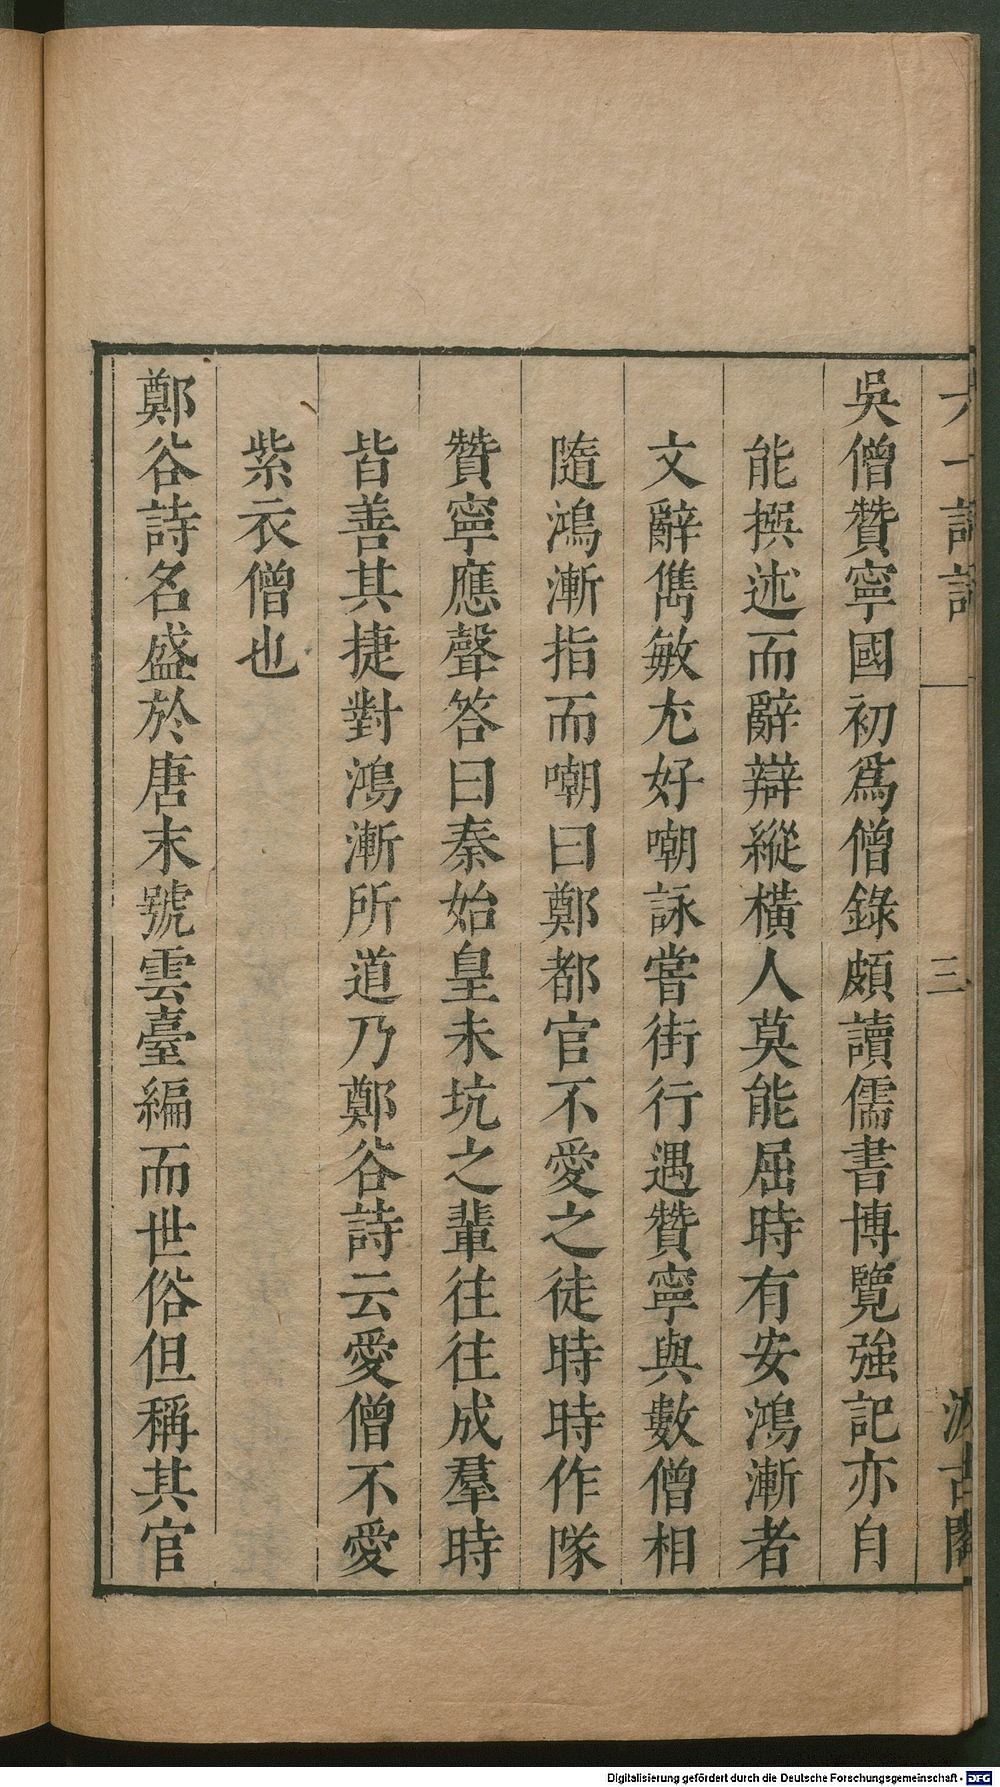 六一詩話
三
汲古閣
吳僧贊寧國初爲僧錄頗讀儒書博覽強記亦自
能撰述而辭辯縱橫人莫能屈時有安鴻漸者
文辭雋敏尤好嘲詠嘗街行遇贊寧與數僧相
隨鴻漸指而嘲曰鄭都官不愛之徒時時作隊
贊寧應聲答曰秦始皇未坑之輩往往成羣時
皆善其捷對鴻漸所道乃鄭谷詩云愛僧不愛
紫衣僧也
鄭谷詩名盛於唐末號雲臺編而世俗但稱其官
Digitalisierung gefördert durch die Deutsche Forschungsgemeinschaft - DFG